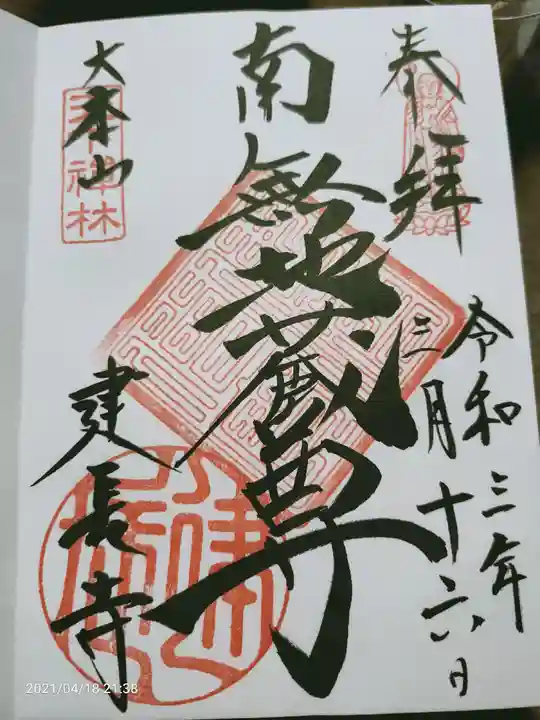 奉拝
令和三年
三月十六日
南無地蔵尊
大本山
建長寺
天下禅林
2021/04/18 21:38